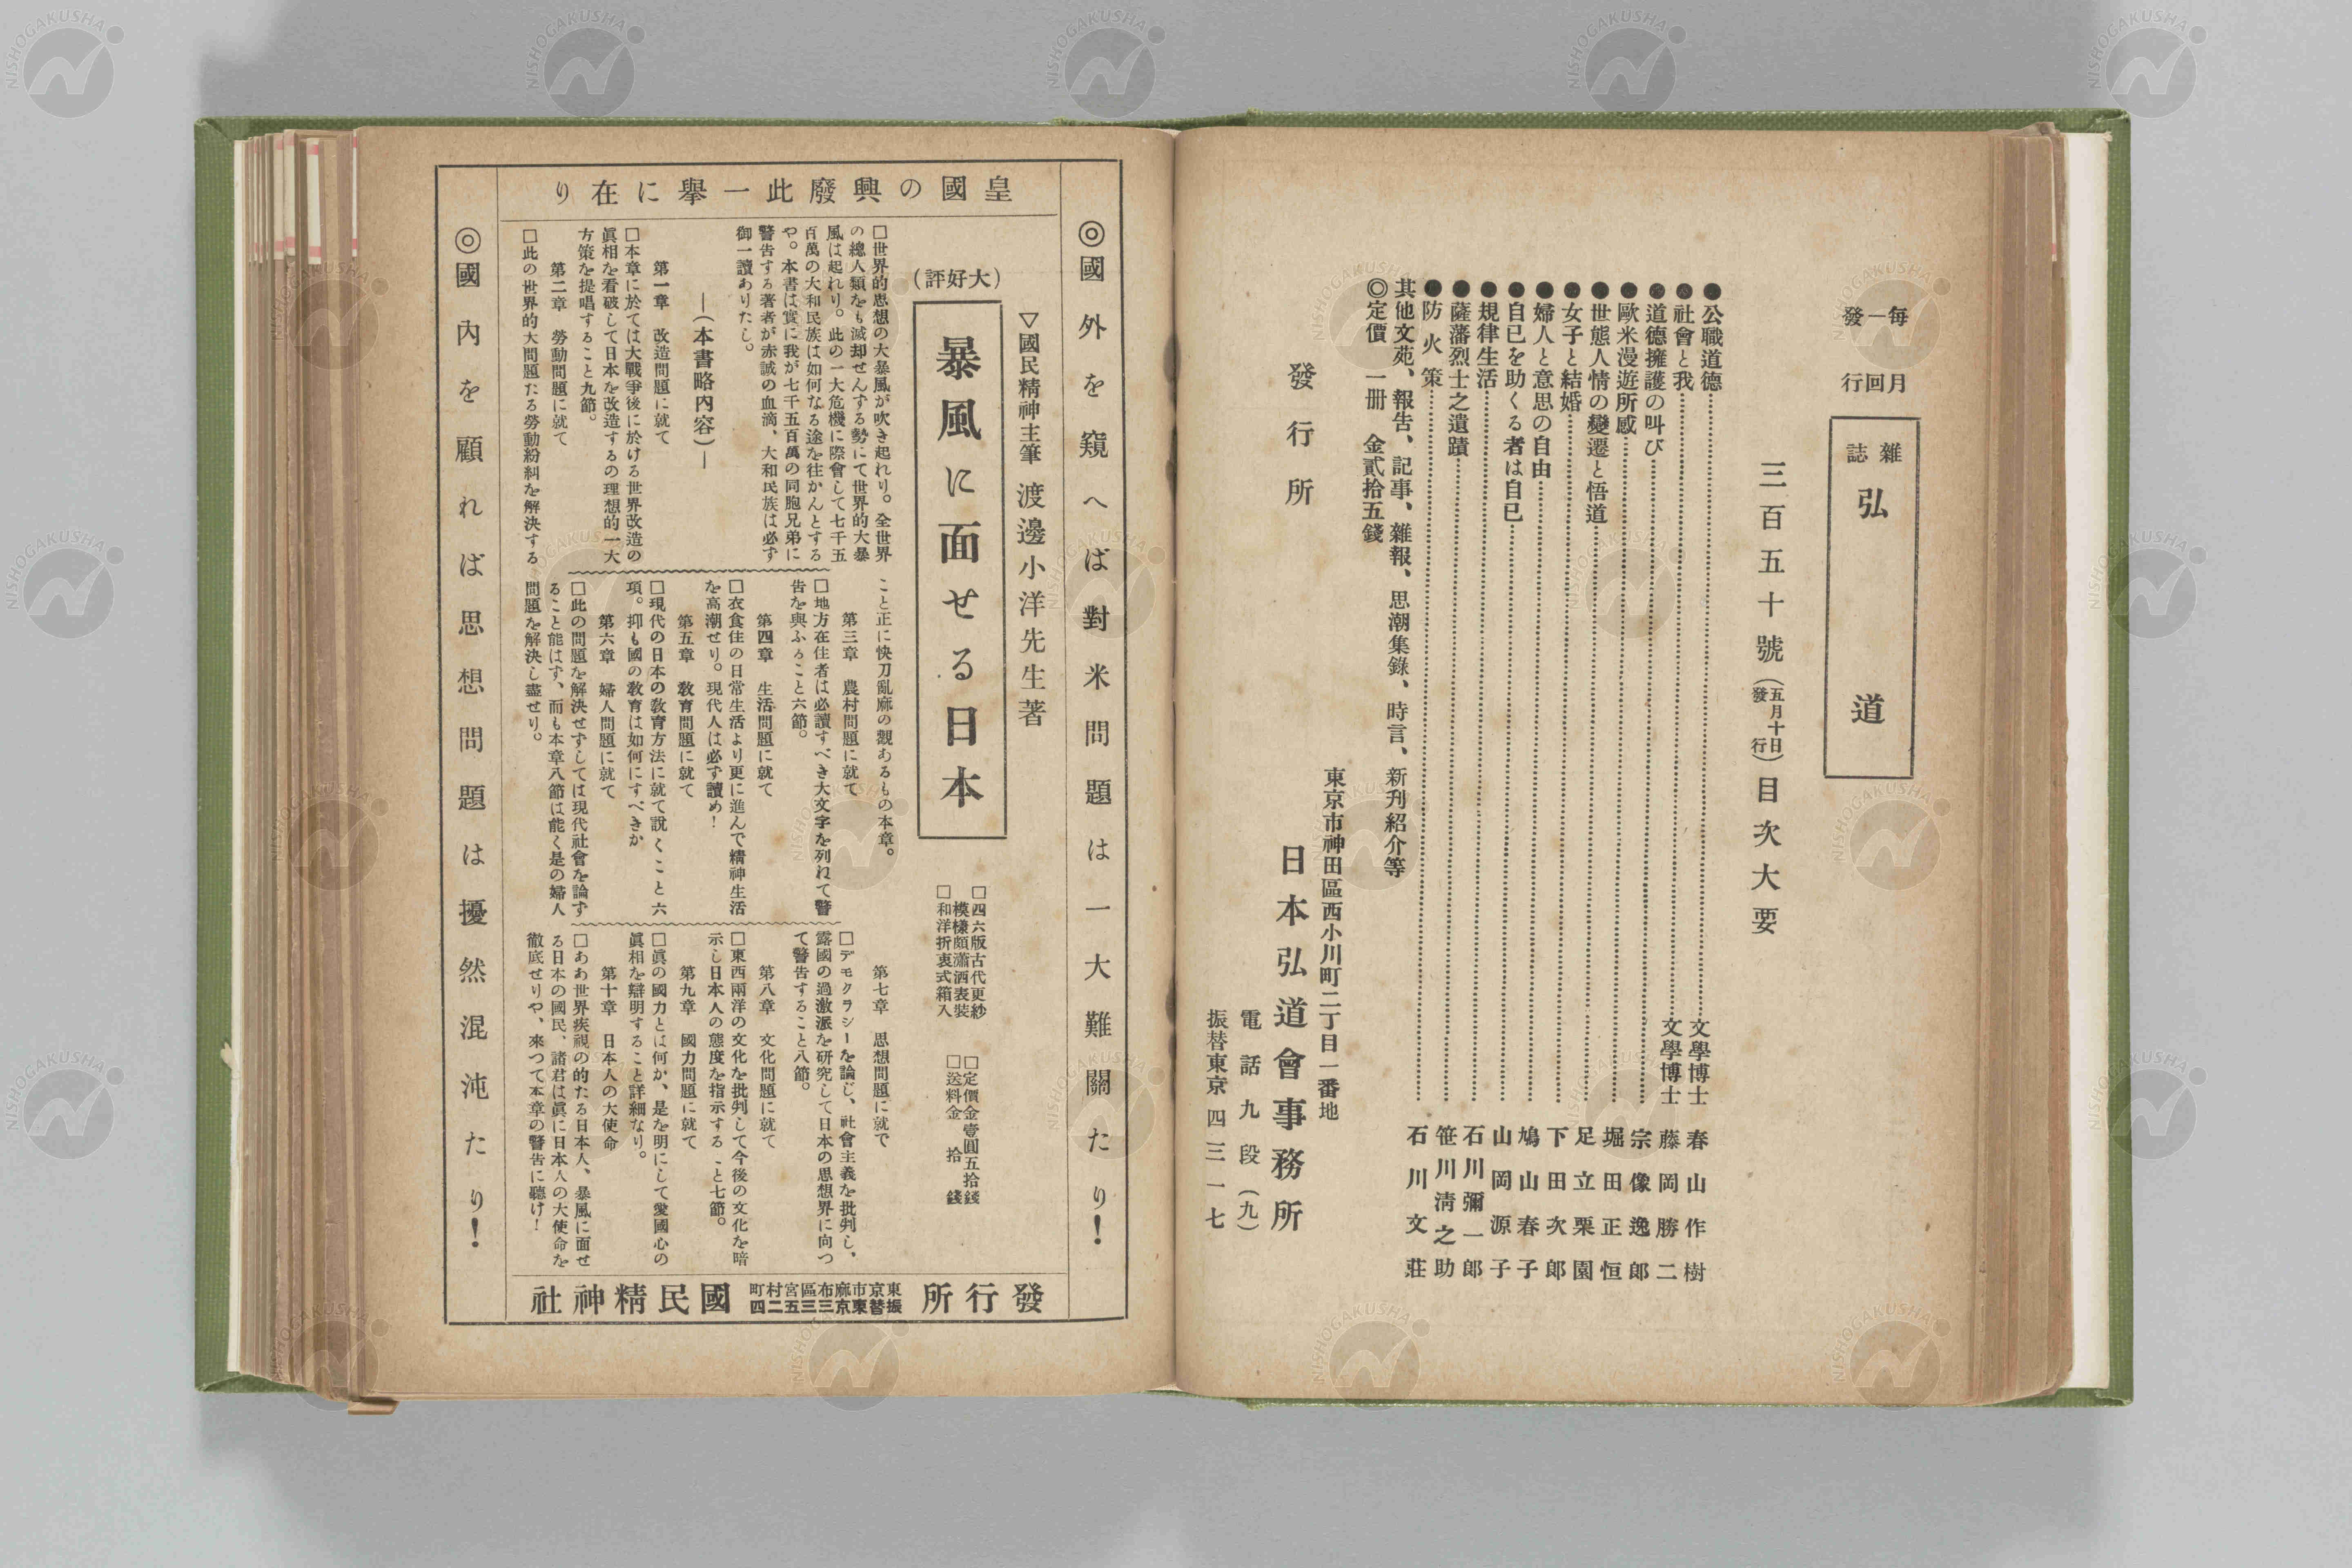 毎月一回發行
雜誌 弘道
三百五十號（五月十日發行）目次大要
●公職道德 文學博士 春山作樹
●社會と我 文學博士 藤岡勝二
●道德擁護の叫び 宗像逸郎
●歐米漫遊所感 堀田正恒
●世態人情の變遷と悟道 足立栗園
●女子と結婚 下田次郎
●婦人と意思の自由 鳩山春子
●自已を助くる者は自已 山岡源子
●規律生活 石川彌一郎
●薩藩烈士之遺蹟 笹川淸之助
●防火策 石川文莊
其他文苑、報告、記事、雜報、思潮集錄、時言、新刋紹介等
◎定價 一册 金貳拾五錢
東京市神田區西小川町二丁目一番地
發行所 日本弘道會事務所
電話九段（九）
振替東京四三一七
◎國外を窺へば對米問題は一大難關たり！
皇國の興廢此一擧に在り
▽國民精神主筆 渡邊小洋先生著
（大好評）
暴風に面せる日本
□四六版古代更紗
模樣頗瀟洒表裝
□和洋折衷式箱入
□定價金壹圓五拾錢
□送料金 拾錢
□世界的思想の大暴風が吹き起れり。全世界
の總人類をも滅却せんする勢にて世界的大暴
風は起れり。此の一大危機に際會して七千五
百萬の大和民族は如何なる途を往かんとする
や。本書は實に我が七千五百萬の同胞兄弟に
警告する著者が赤誠の血滴、大和民族は必ず
御一讀ありたし。
―（本書略內容）―
第一章 改造問題に就て
□本章に於ては大戰爭後に於ける世界改造の
眞相を看破して日本を改造するの理想的一大
方策を提唱すること九節。
第二章 勞動問題に就て
□此の世界的大問題たる勞動紛糾を解決する
こと正に快刀亂麻の觀あるもの本章。
第三章 農村問題に就て
□地方在住者は必讀すべき大文字を列ねて警
告を與ふること六節。
第四章 生活問題に就て
□衣食住の日常生活より更に進んで精神生活
を高潮せり。現代人は必ず讀め！
第五章 敎育問題に就て
□現代の日本の敎育方法に就て說くこと六
項。抑も國の敎育は如何にすべきか
第六章 婦人問題に就て
□此の問題を解決せずしては現代社會を論ず
ること能はず、而も本章八節は能く是の婦人
問題を解決し盡せり。
第七章 思想問題に就て
□デモクラシーを論じ、社會主義を批判し、
露國の過激派を硏究して日本の思想界に向つ
て警告すること八節。
第八章 文化問題に就て
□東西兩洋の文化を批判して今後の文化を暗
示し日本人の態度を指示すること七節。
第九章 國力問題に就て
□眞の國力とは何か、是を明にして愛國心の
眞相を辯明すること詳細なり。
第十章 日本人の大使命
□ああ世界疾視の的たる日本人、暴風に面せ
る日本の國民、諸君は眞に日本人の大使命を
徹底せりや、來つて本章の警告に聽け！
發行所 東京市麻布區宮村町 振替東京三三五二四 國民精神社
◎國內を顧れば思想問題は擾然混沌たり！